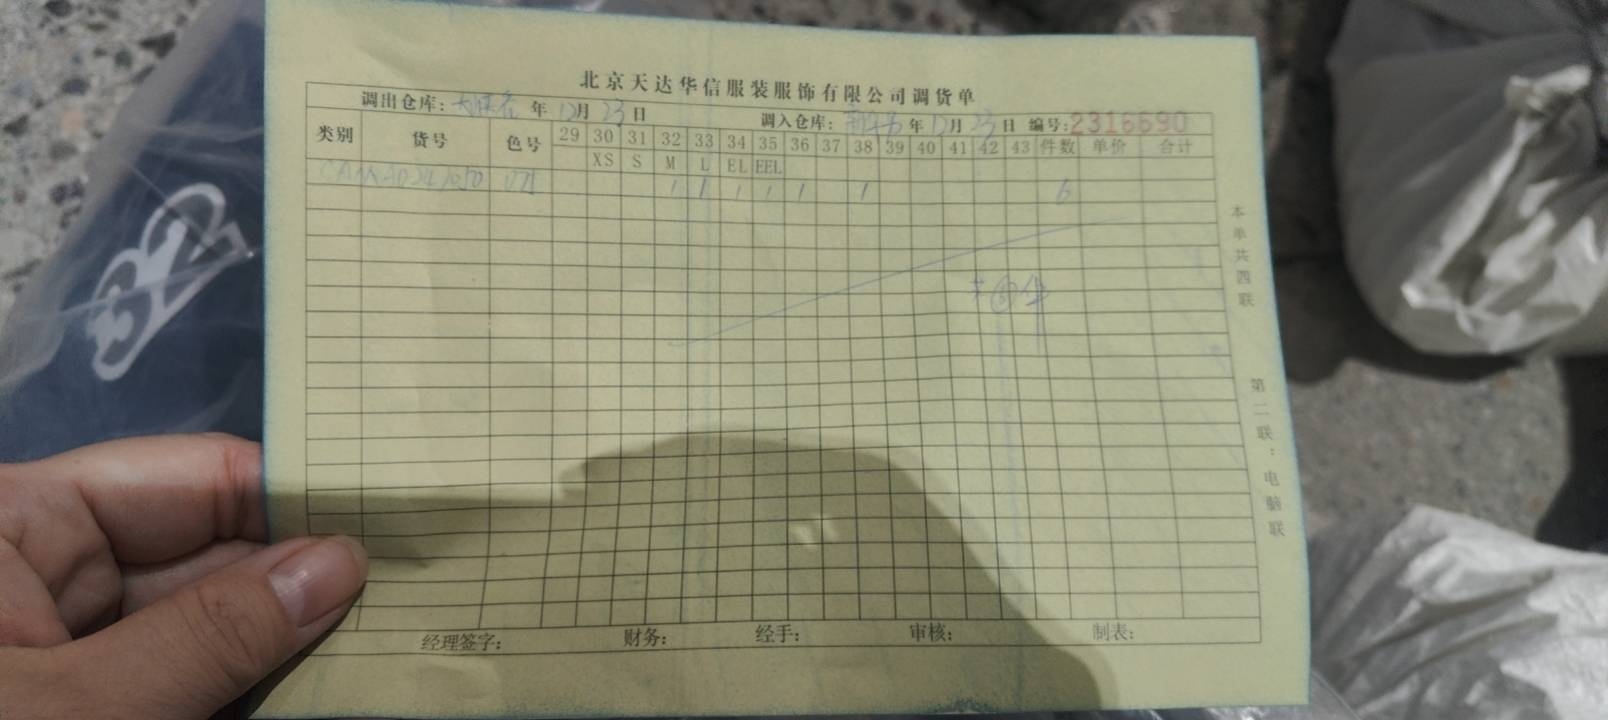 北京天达华信服装服饰有限公司调货单
调出仓库: 年 12月 23 日 调入仓库: 年 12月 23 日 编号:2316690
类别 货号 色号 29 30 31 32 33 34 35 36 37 38 39 40 41 42 43 件数 单价 合计
XS S M L EL EEL
1 1 1 1 1 1 6
本单共四联
第二联:电脑联
经理签字: 财务: 经手: 审核: 制表: